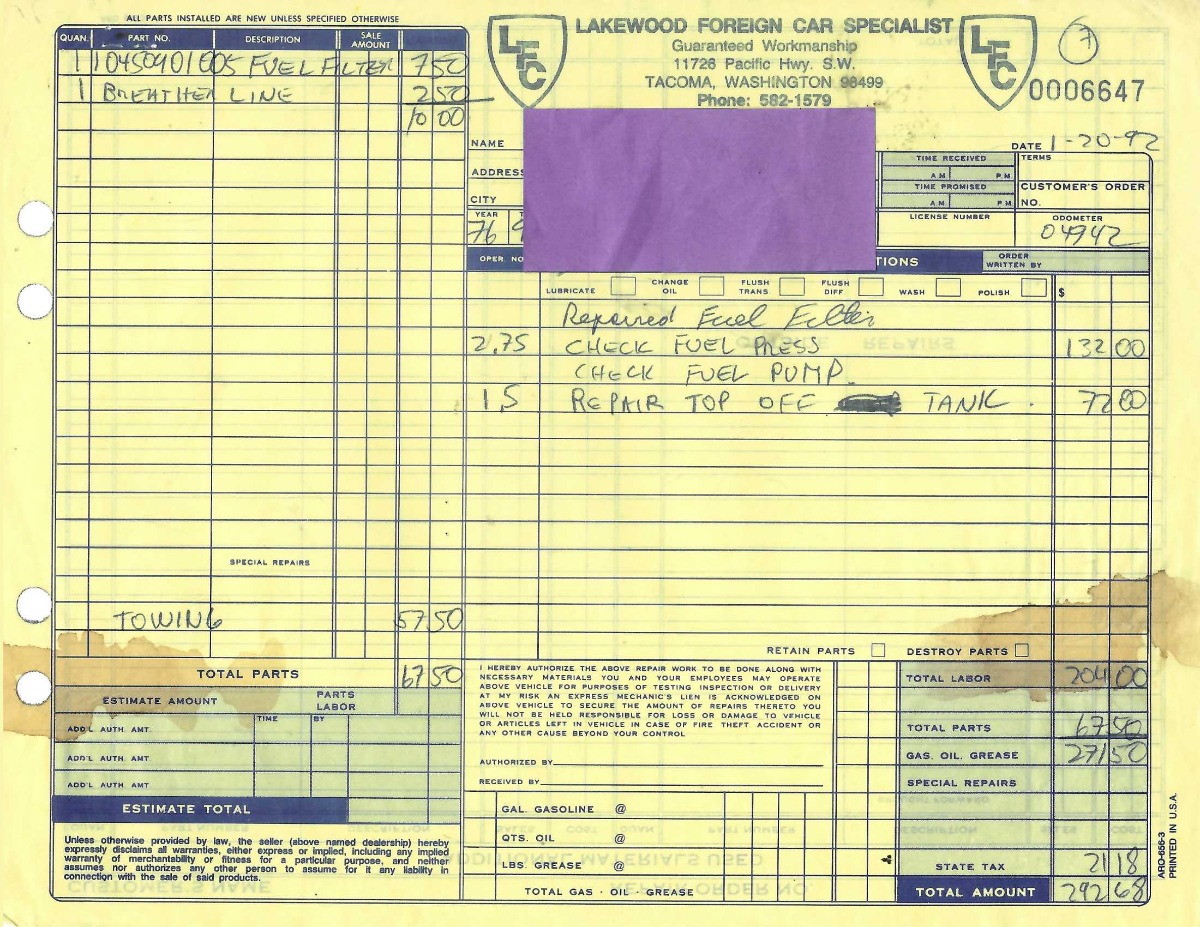 ALL PARTS INSTALLED ARE NEW UNLESS SPECIFIED OTHERWISE
QUAN. PART NO. DESCRIPTION SALE AMOUNT
1 10450901005 FUEL FILTER 7 50
1 BREATHER LINE 2 50
10 00
SPECIAL REPAIRS
TOWING 57 50
TOTAL PARTS 67 50
ESTIMATE AMOUNT PARTS LABOR
TIME BY
ADD'L AUTH. AMT.
ADD'L AUTH. AMT.
ADD'L AUTH. AMT
ESTIMATE TOTAL
Unless otherwise provided by law, the seller (above named dealership) hereby
expressly disclaims all warranties, either express or implied, including any implied
warranty of merchantability or fitness for a particular purpose, and neither
assumes nor authorizes any other person to assume for it any liability in
connection with the sale of said products.
LFC
LAKEWOOD FOREIGN CAR SPECIALIST
Guaranteed Workmanship
11726 Pacific Hwy. S.W.
TACOMA, WASHINGTON 98499
Phone: 582-1579
LFC
7
0006647
NAME
DATE 1-20-92
ADDRESS
CITY
TIME RECEIVED
A.M. P.M.
TIME PROMISED
A.M. P.M.
TERMS
CUSTOMER'S ORDER NO.
YEAR
76 9
LICENSE NUMBER
ODOMETER
04942
OPER. NO.
TIONS
ORDER WRITTEN BY
LUBRICATE CHANGE OIL FLUSH TRANS FLUSH DIFF WASH POLISH $
Repaired Fuel Filter
2.75 CHECK FUEL PRESS 132 00
CHECK FUEL PUMP.
1,5 REPAIR TOP OFF TANK . 72 00
RETAIN PARTS DESTROY PARTS
I HEREBY AUTHORIZE THE ABOVE REPAIR WORK TO BE DONE ALONG WITH
NECESSARY MATERIALS YOU AND YOUR EMPLOYEES MAY OPERATE
ABOVE VEHICLE FOR PURPOSES OF TESTING INSPECTION OR DELIVERY
AT MY RISK AN EXPRESS MECHANIC'S LIEN IS ACKNOWLEDGED ON
ABOVE VEHICLE TO SECURE THE AMOUNT OF REPAIRS THERETO YOU
WILL NOT BE HELD RESPONSIBLE FOR LOSS OR DAMAGE TO VEHICLE
OR ARTICLES LEFT IN VEHICLE IN CASE OF FIRE THEFT ACCIDENT OR
ANY OTHER CAUSE BEYOND YOUR CONTROL
AUTHORIZED BY
RECEIVED BY
GAL. GASOLINE @
QTS. OIL @
LBS. GREASE @
TOTAL GAS - OIL - GREASE
TOTAL LABOR 204 00
TOTAL PARTS 67 50
GAS. OIL. GREASE 271 50
SPECIAL REPAIRS
STATE TAX 21 18
TOTAL AMOUNT 292 68
ARO-656-3
PRINTED IN U.S.A.